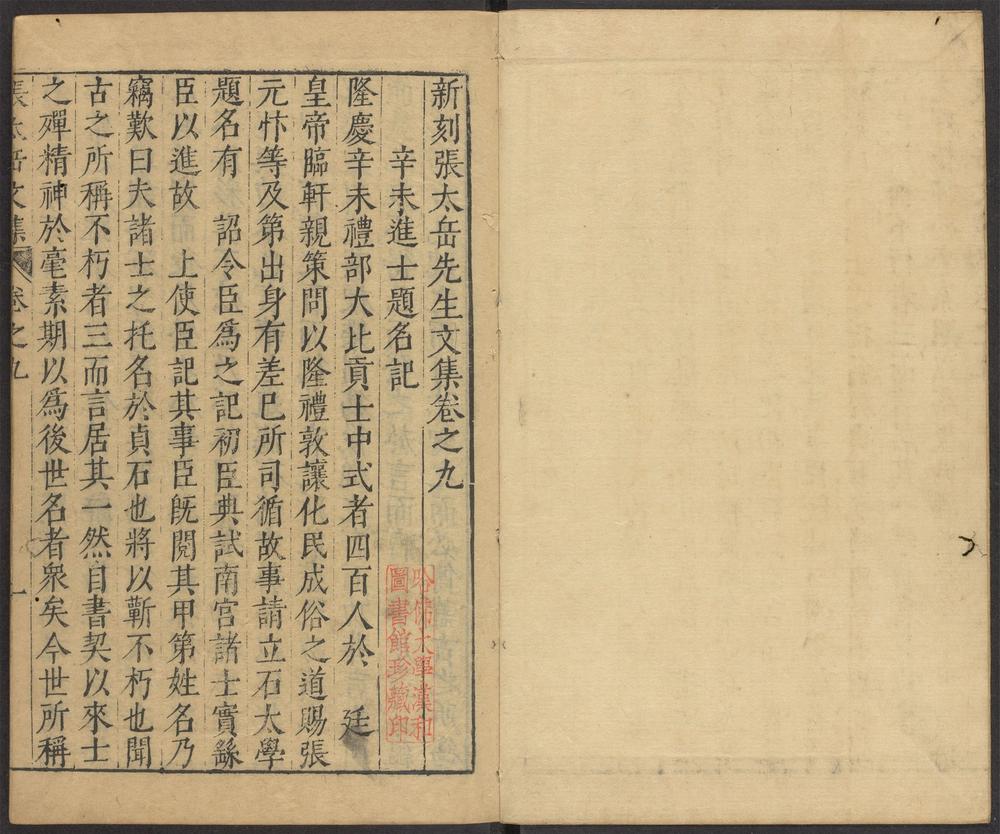 新刻張太岳先生文集卷之九
辛未進士題名記
隆慶辛未禮部大比貢士中式者四百人於 廷
皇帝臨軒親策問以隆禮敦讓化民成俗之道賜張
元忭等及第出身有差已所司循故事請立石太學
題名有 詔令臣爲之記初臣典試南宫諸士實繇
臣以進故 上使臣記其事臣旣閱其甲第姓名乃
竊歎曰夫諸士之托名於貞石也將以蘄不朽也聞
古之所稱不朽者三而言居其一然自書契以來士
之殫精神於毫素期以爲後世名者衆矣今世所稱
張太岳文集 卷之九 一
哈佛大學漢和
圖書館珍藏印